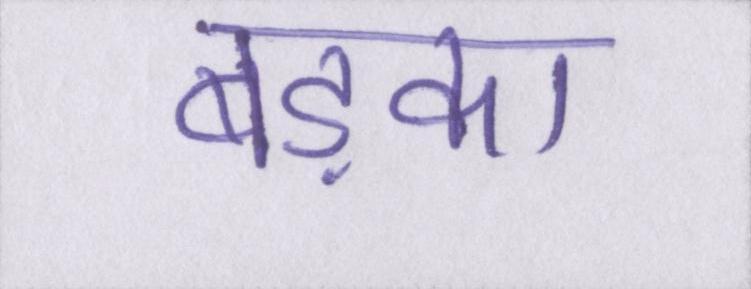 बड़का